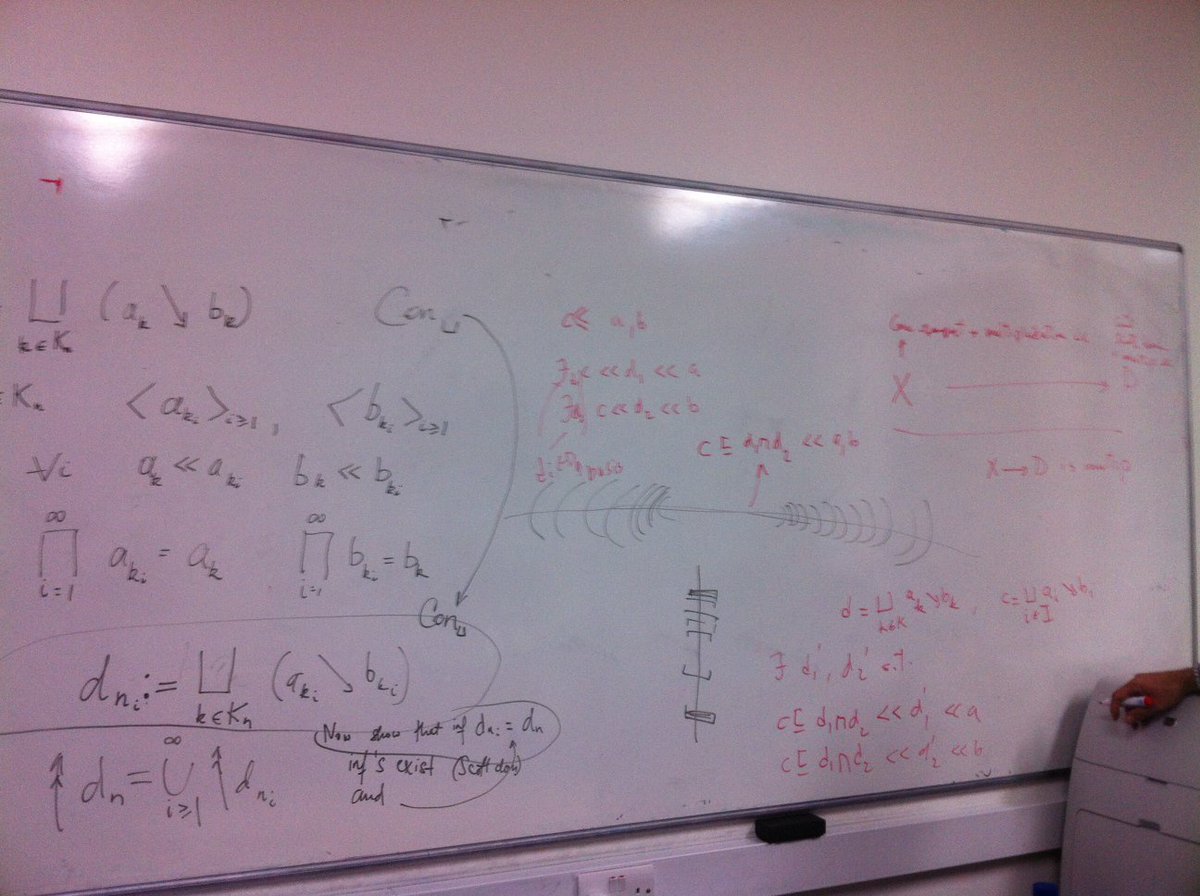 ⊔ (a_k ↘ b_k)
k ∈ K_n
Con_⊔
∈ K_n  <a_{k_i}>_{i≥1} , <b_{k_i}>_{i≥1}
∀i  a_k ≪ a_{k_i}  b_k ≪ b_{k_i}
∏_{i=1}^{∞} a_{k_i} = a_k  ∏_{i=1}^{∞} b_{k_i} = b_k
Con_⊔
d_{n_i} := ⊔_{k∈K_n} (a_{k_i} ↘ b_{k_i})
Now show that if d_{n_i} = d_n
inf's exist (Scott dom)
and
↟ d_n = ∪_{i≥1}^{∞} ↑ d_{n_i}
c ≪ a, b
∃ c ≪ d_1 ≪ a
∃ c ≪ d_2 ≪ b
c ⊑ d_1 ⊓ d_2 ≪ a, b
X → D
X → D is
d = ⊔_{k∈K} a_k ↘ b_k , c = ⊔_{i∈I} a_i ↘ b_i
∃ d_1', d_2' s.t.
c ⊑ d_1 ⊓ d_2 ≪ d_1' ≪ a
c ⊑ d_1 ⊓ d_2 ≪ d_2' ≪ b